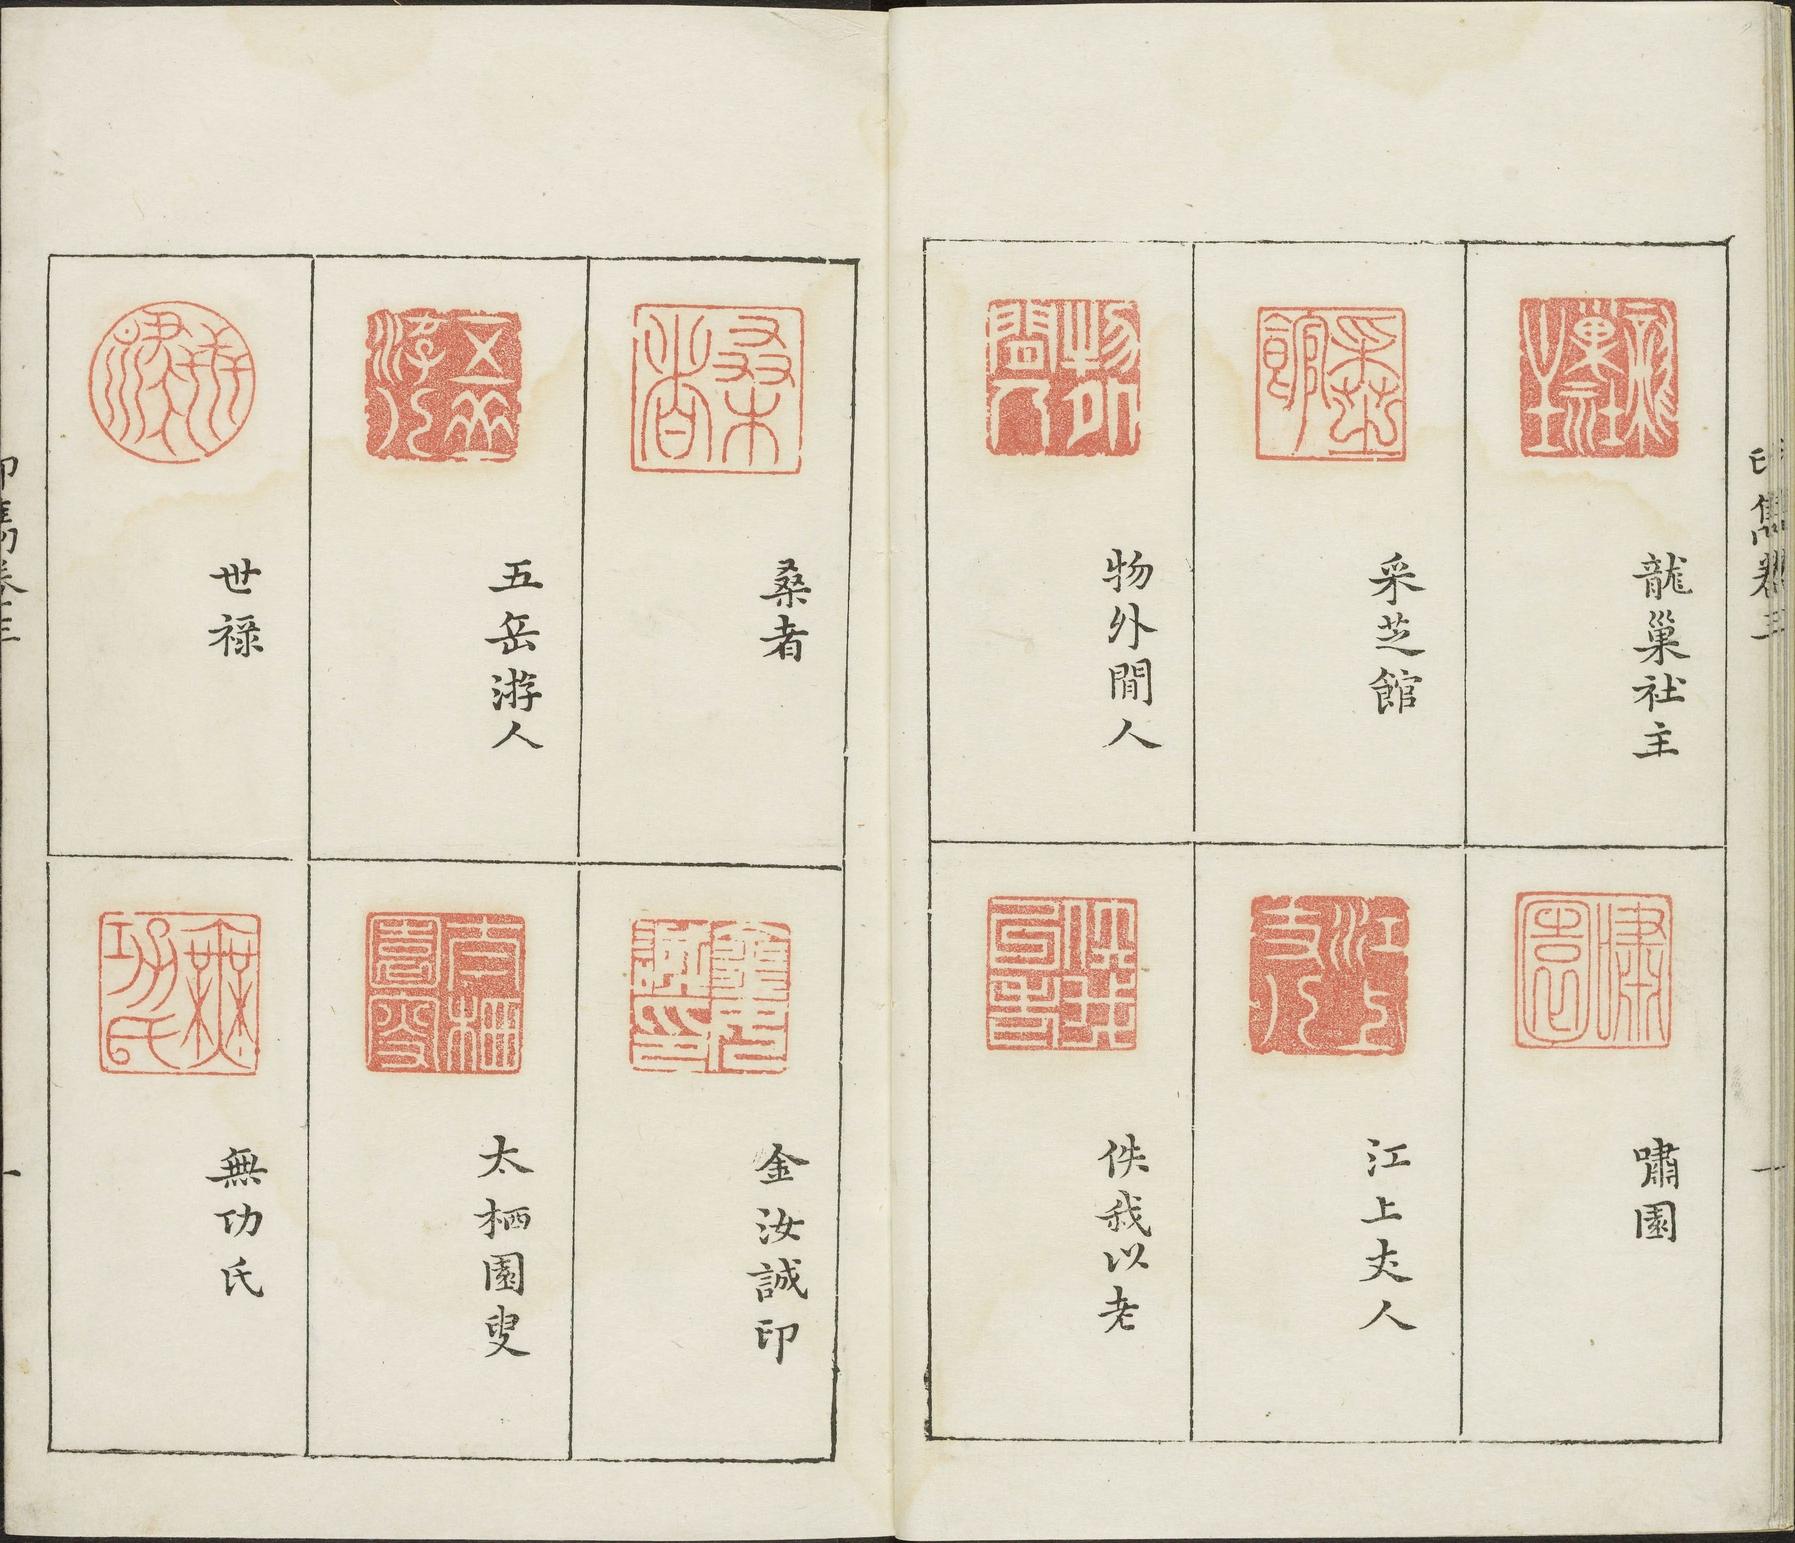 印雋卷三
一
龍巢社主
采芝館
物外閒人
嘯園
江上丈人
佚我以老
桑者
五岳游人
世祿
金汝誠印
太栖園叟
無功氏
印雋卷三
一